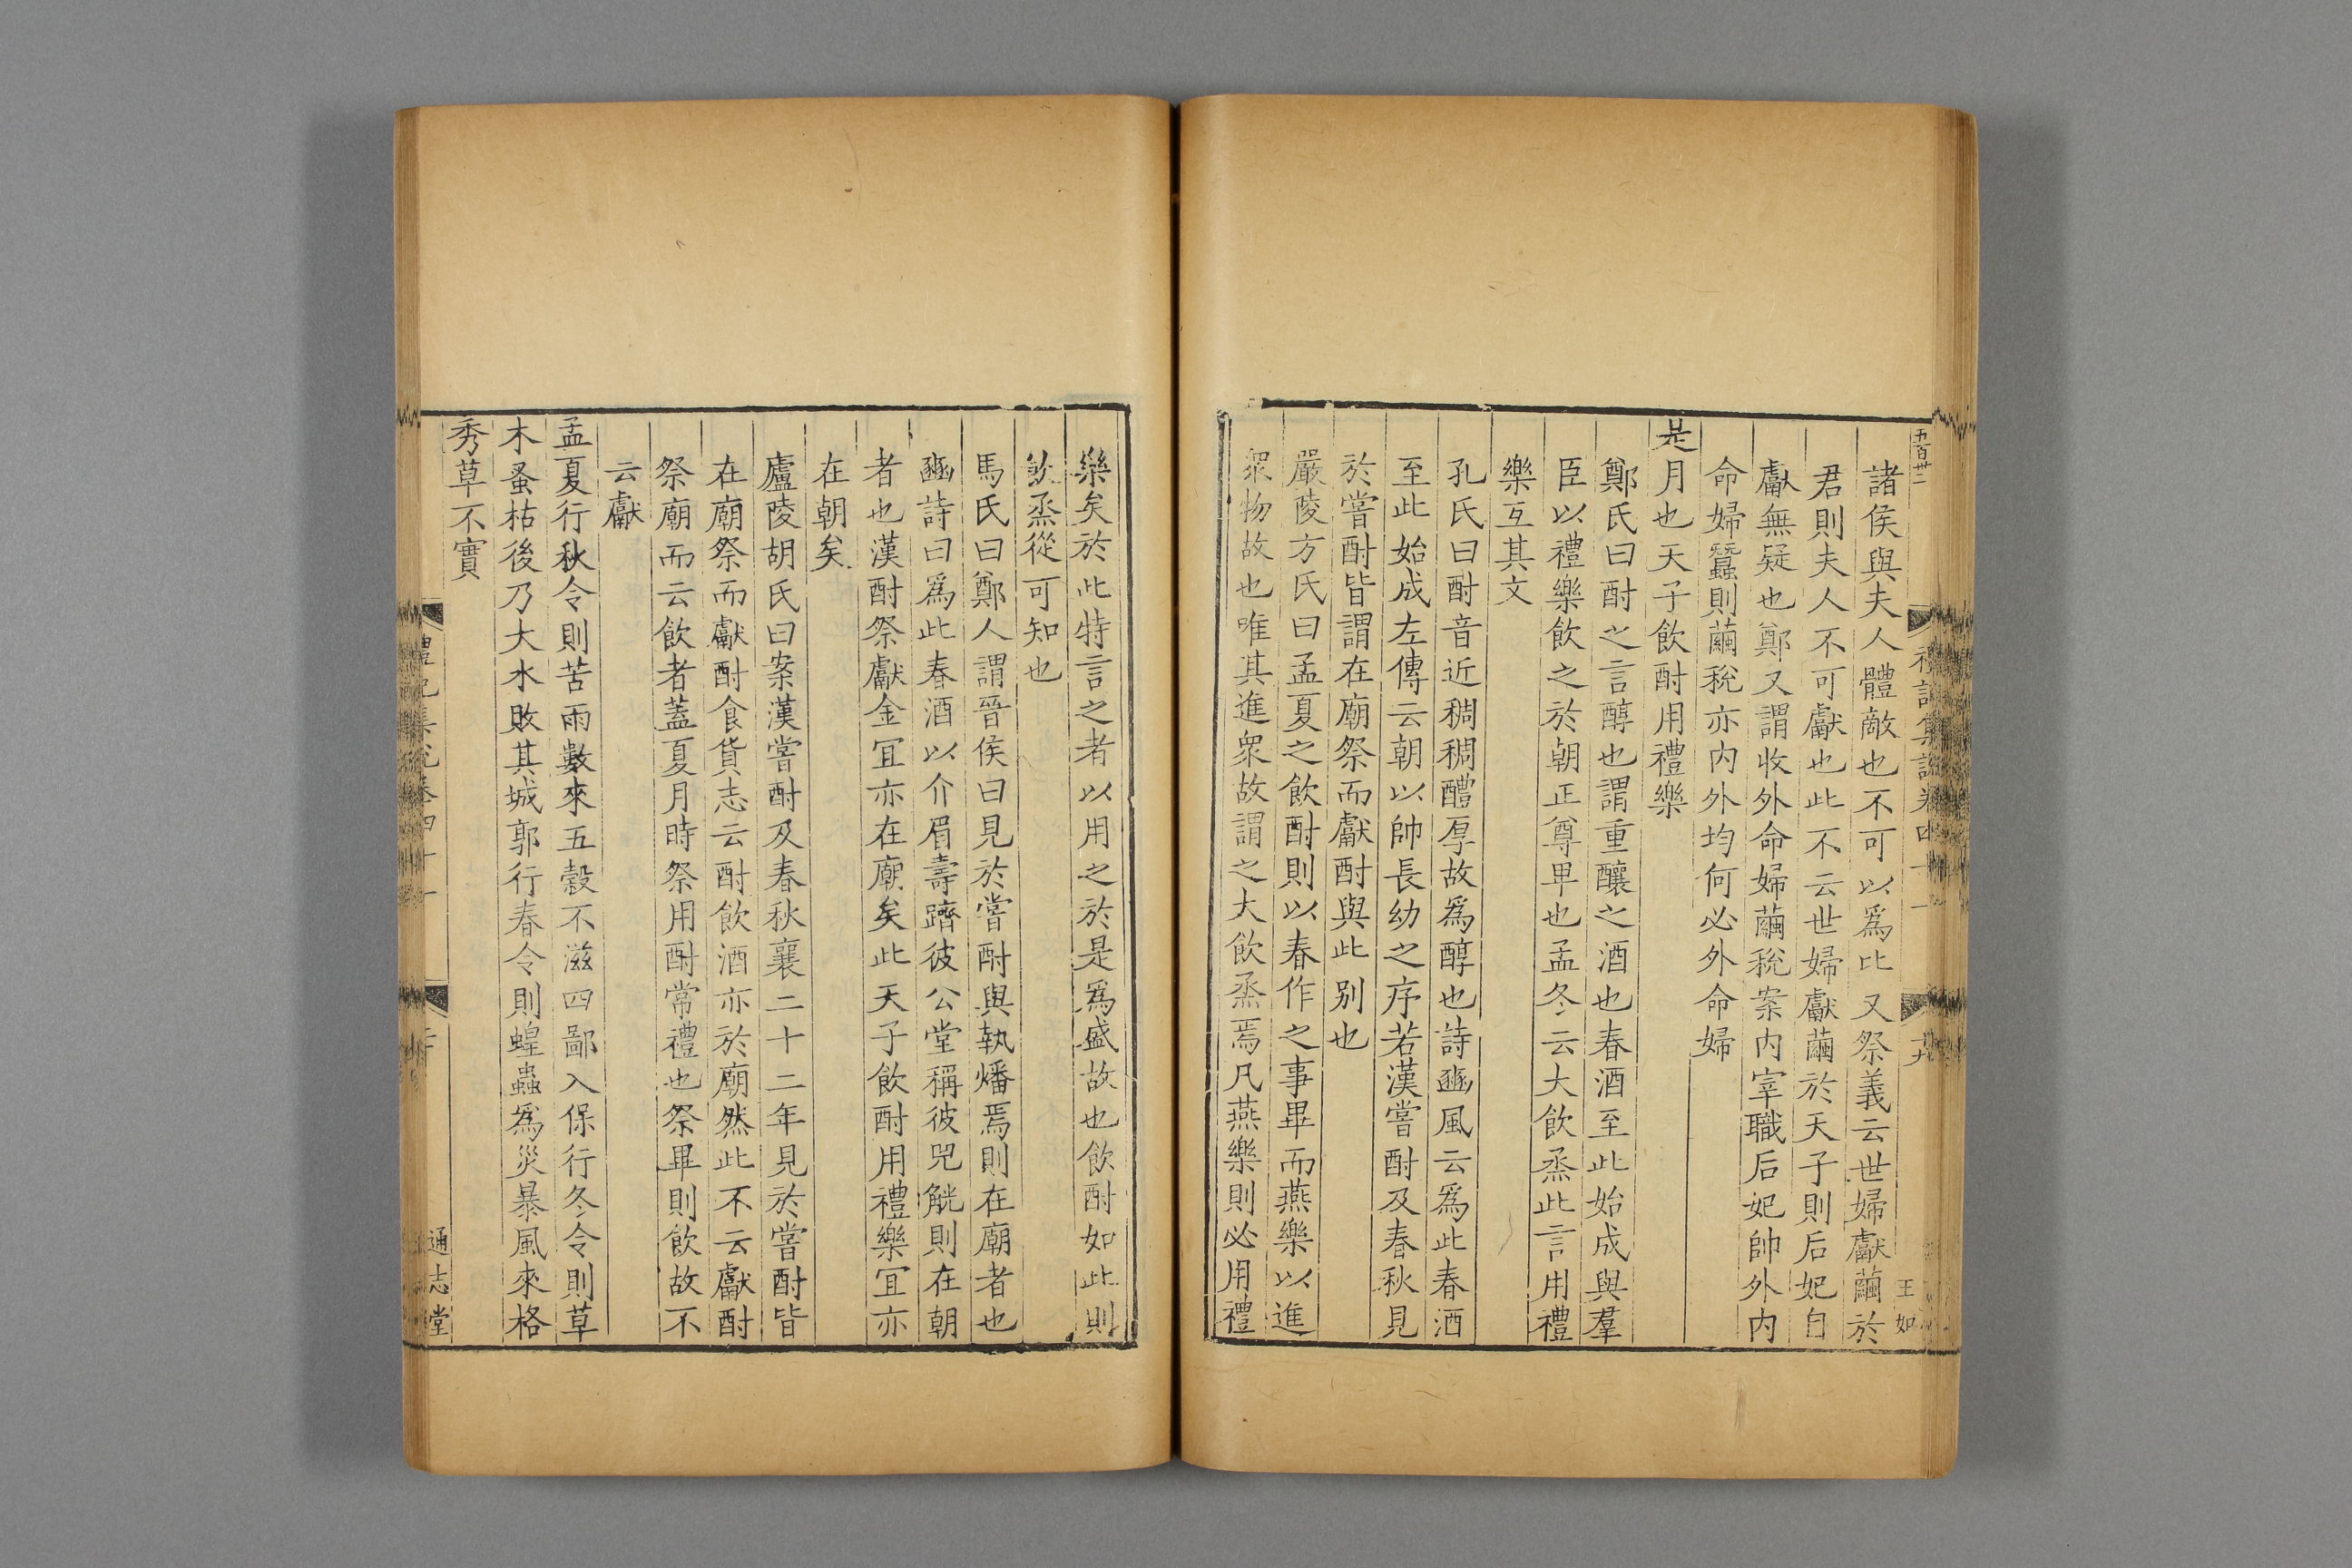 五百卅二
諸侯與夫人體敵也不可以爲比又祭義云世婦獻繭於
君則夫人不可獻也此不云世婦獻繭於天子則后妃自
獻無疑也鄭又謂收外命婦繭稅案内宰職后妃帥外内
命婦蠶則繭稅亦内外均何必外命婦
是月也天子飲酎用禮樂
鄭氏曰酎之言醇也謂重釀之酒也春酒至此始成與羣
臣以禮樂飲之於朝正尊卑也孟冬云大飲烝此言用禮
樂互其文
孔氏曰酎音近稠稠醲厚故爲醇也詩豳風云爲此春酒
至此始成左傳云朝以帥長幼之序若漢嘗酎及春秋見
於嘗酎皆謂在廟祭而獻酎與此别也
嚴陵方氏曰孟夏之飲酎則以春作之事畢而燕樂以進
衆物故也唯其進衆故謂之大飲烝焉凡燕樂則必用禮
樂矣於此特言之者以用之於是爲盛故也飲酎如此則
飲烝從可知也
馬氏曰鄭人謂晉侯曰見於嘗酎與執燔焉則在廟者也
豳詩曰爲此春酒以介眉壽躋彼公堂稱彼兕觥則在朝
者也漢酎祭獻金宜亦在廟矣此天子飲酎用禮樂宜亦
在朝矣
廬陵胡氏曰案漢嘗酎及春秋襄二十二年見於嘗酎皆
在廟祭而獻酎食貨志云酎飲酒亦於廟然此不云獻酎
祭廟而云飲者蓋夏月時祭用酎常禮也祭畢則飲故不
云獻
孟夏行秋令則苦雨數來五穀不滋四鄙入保行冬令則草
木蚤枯後乃大水敗其城郭行春令則蝗蟲爲災暴風來格
秀草不實
禮記集說卷四十一
王如
通志堂